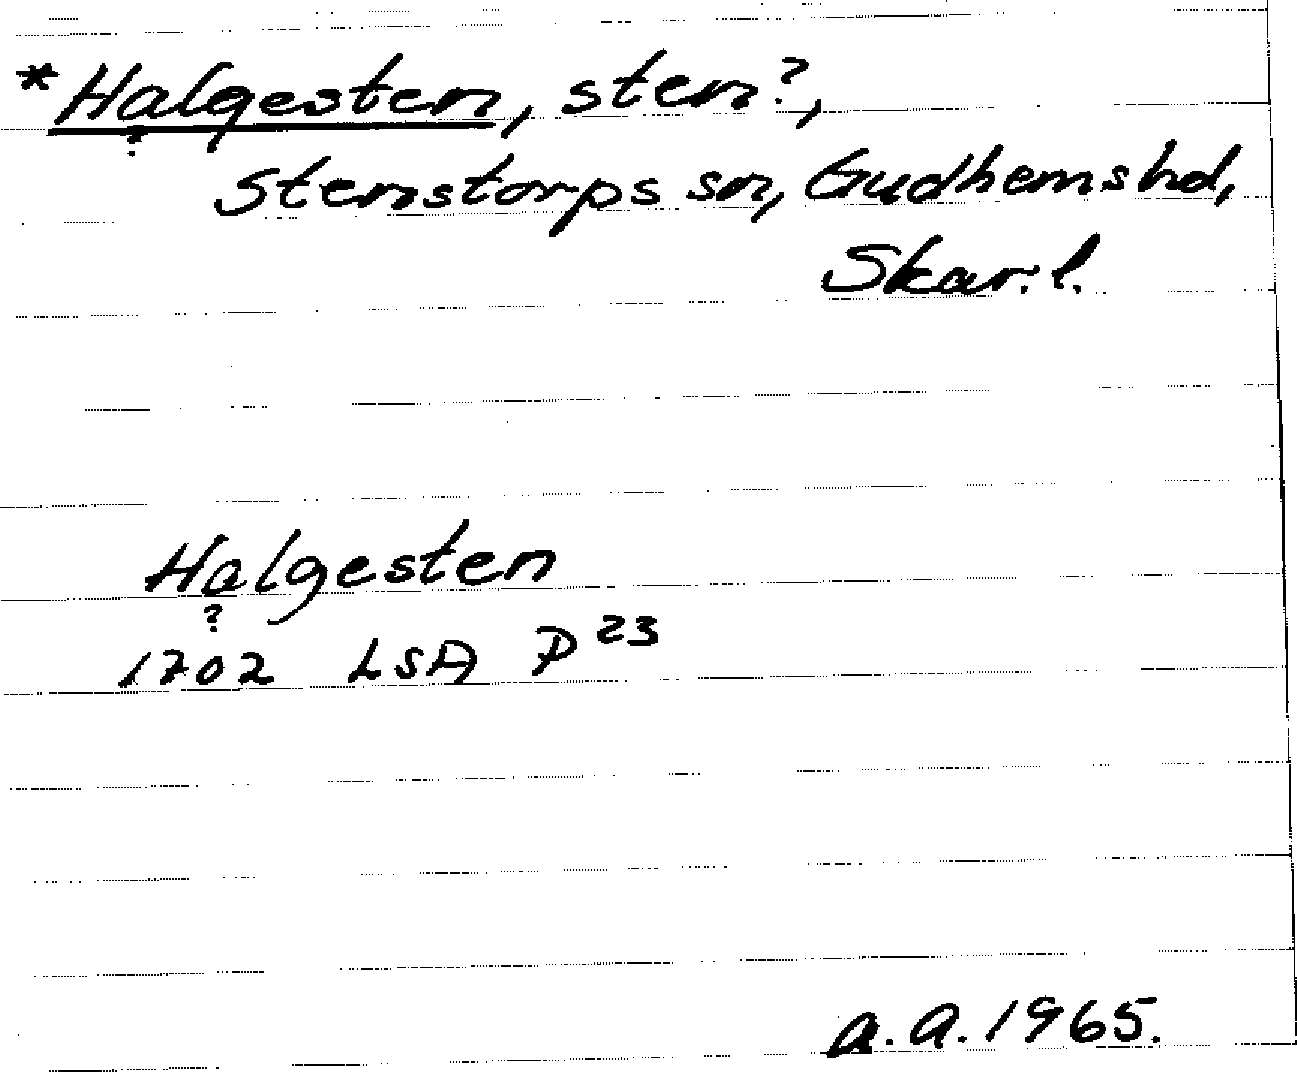 *Halgesten, sten?,
?
Stenstorps sn, Gudhems hd,
Skar. l.
Halgesten
?
1702 LSA P 23
a.a. 1965.